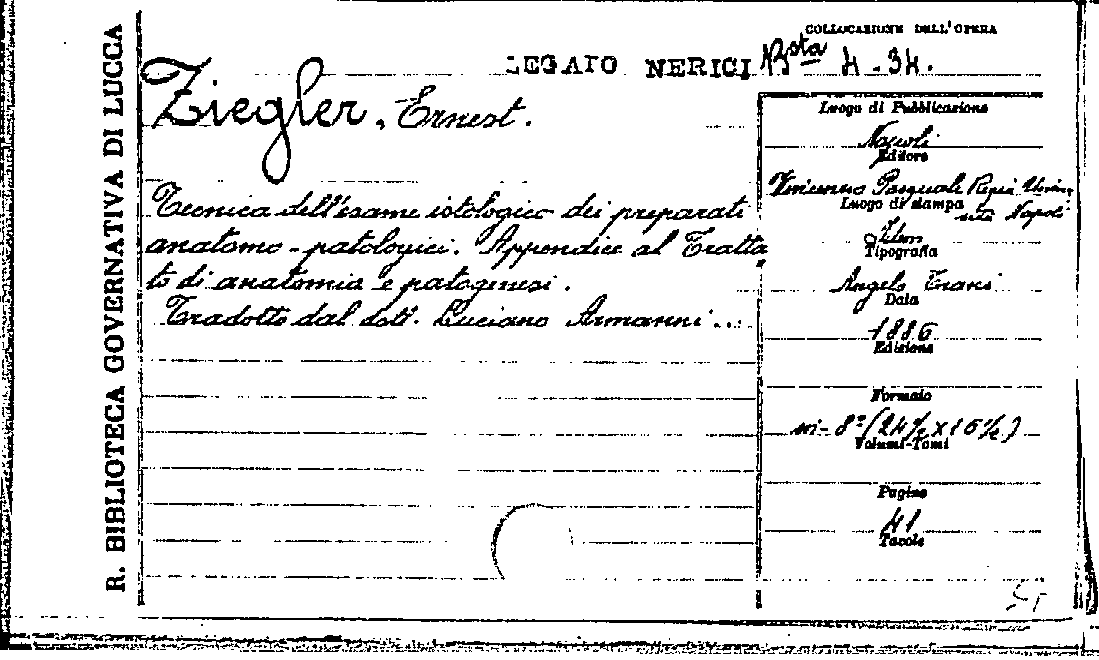 R. BIBLIOTECA GOVERNATIVA DI LUCCA
COLLOCAZIONE DELL'OPERA
LEGATO NERICI Bsta 4-34.
Ziegler, Ernest.
Tecnica dell'esame istologico dei preparati
anatomo-patologici. Appendice al Tratta
to di anatomia e patogenesi.
Tradotto dal dott. Luciano Armanni...
Luogo di Pubblicazione
Napoli
Editore
Vincenzo Pasquale
Napoli
Luogo di stampa
Idem
Tipografia
Angelo Trani
Data
1886
Edizione
Formato
in-8º (24½ x 16½)
Volumi-Tomi
Pagine
41
Tavole